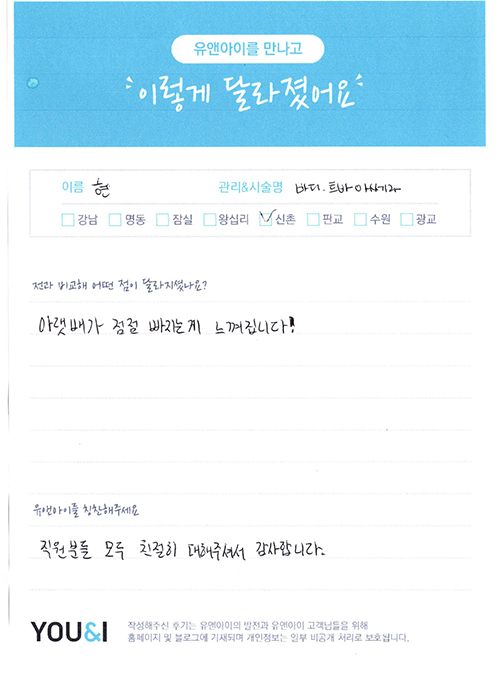 유앤아이를 만나고
이렇게 달라졌어요
이름 현 관리&시술명 바디.
강남 명동 잠실 왕십리 신촌 판교 수원 광교
전과 비교해 어떤 점이 달라지셨나요?
아랫배가 점점 빠지는게 느껴집니다!
유앤아이를 칭찬해주세요
직원분들 모두 친절히 대해주셔서 감사합니다.
YOU&I
작성해주신 후기는 유앤아이의 발전과 유앤아이 고객님들을 위해
홈페이지 및 블로그에 기재되며 개인정보는 일부 비공개 처리로 보호됩니다.